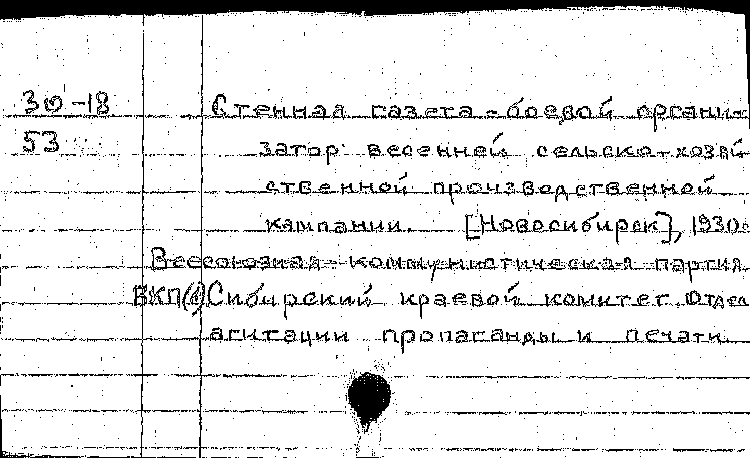 30-18 Стенная газета - боевой органи-
53 затор весенней сельско-хозяй
ственной производственной
кампании. [Новосибирск], 1930.
Всесоюзная коммунистическая партия
ВКП(б) Сибирский краевой комитет. Отдел
агитации пропаганды и печати.